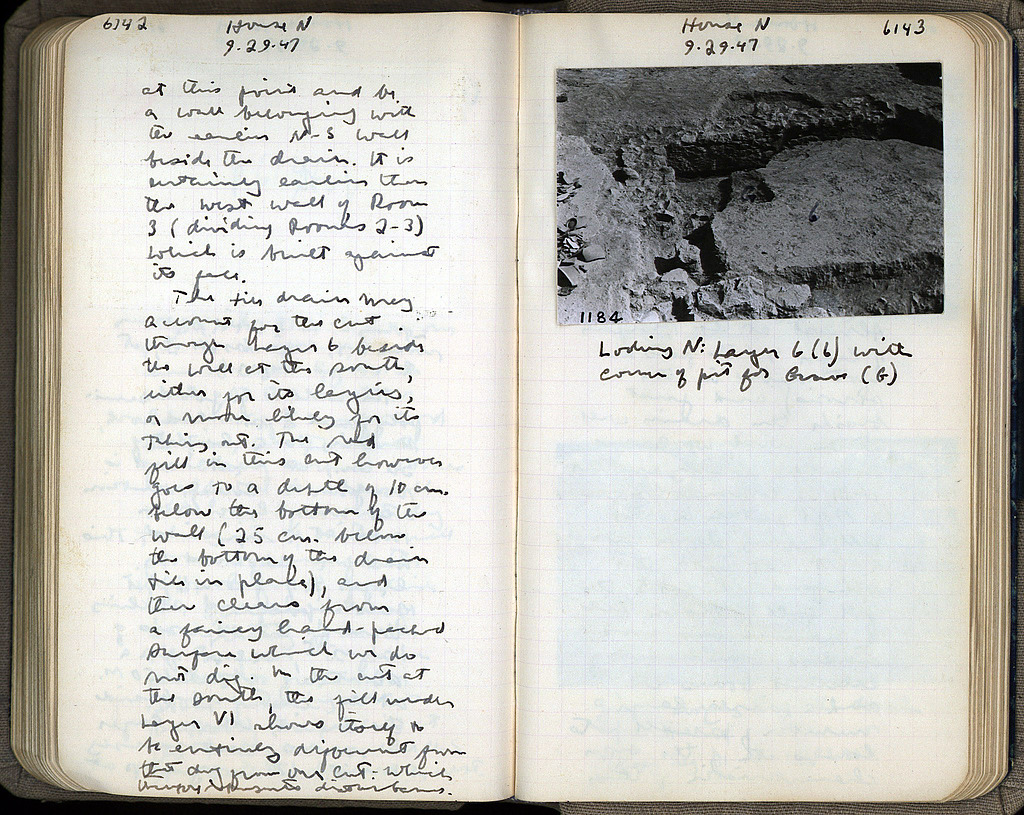 6142
House N
9.29.47
at this point and be
a wall belonging with
the earlier N-S wall
beside the drain. It is
certainly earlier than
the west wall of Room
3 (dividing Rooms 2-3)
which is built against
its face.
The tile drain may
account for the cut
through Layer 6 beside
the wall at the south,
either for its laying,
or more likely for its
taking out. The red
fill in this cut however
goes to a depth of 10 cm.
below the bottom of the
wall (25 cm. below
the bottom of the drain
tile in place), and
then cleans from
a fairly hard-packed
surface which we do
not dig. In the cut at
the south, the fill under
Layer VI shows itself to
be entirely different from
that dug from our cut: which
therefore disturbance.
House N
9.29.47
6143
6
1184
Looking N: Layer 6 (6) with
corner of pit for Grave (G)